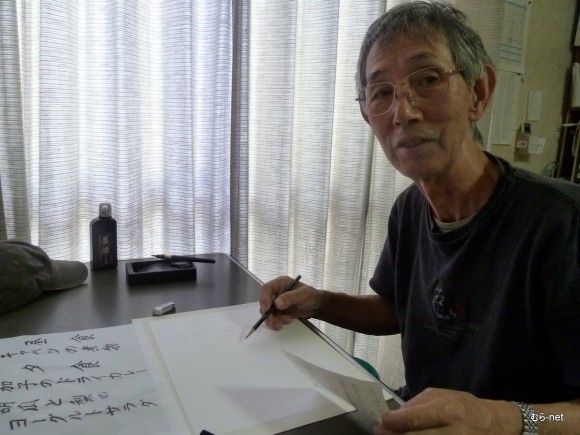 昼食
キャベツの煮物
夕食
茄子のドライカレー
胡瓜と梨の
ヨーグルトサラダ
むら-net